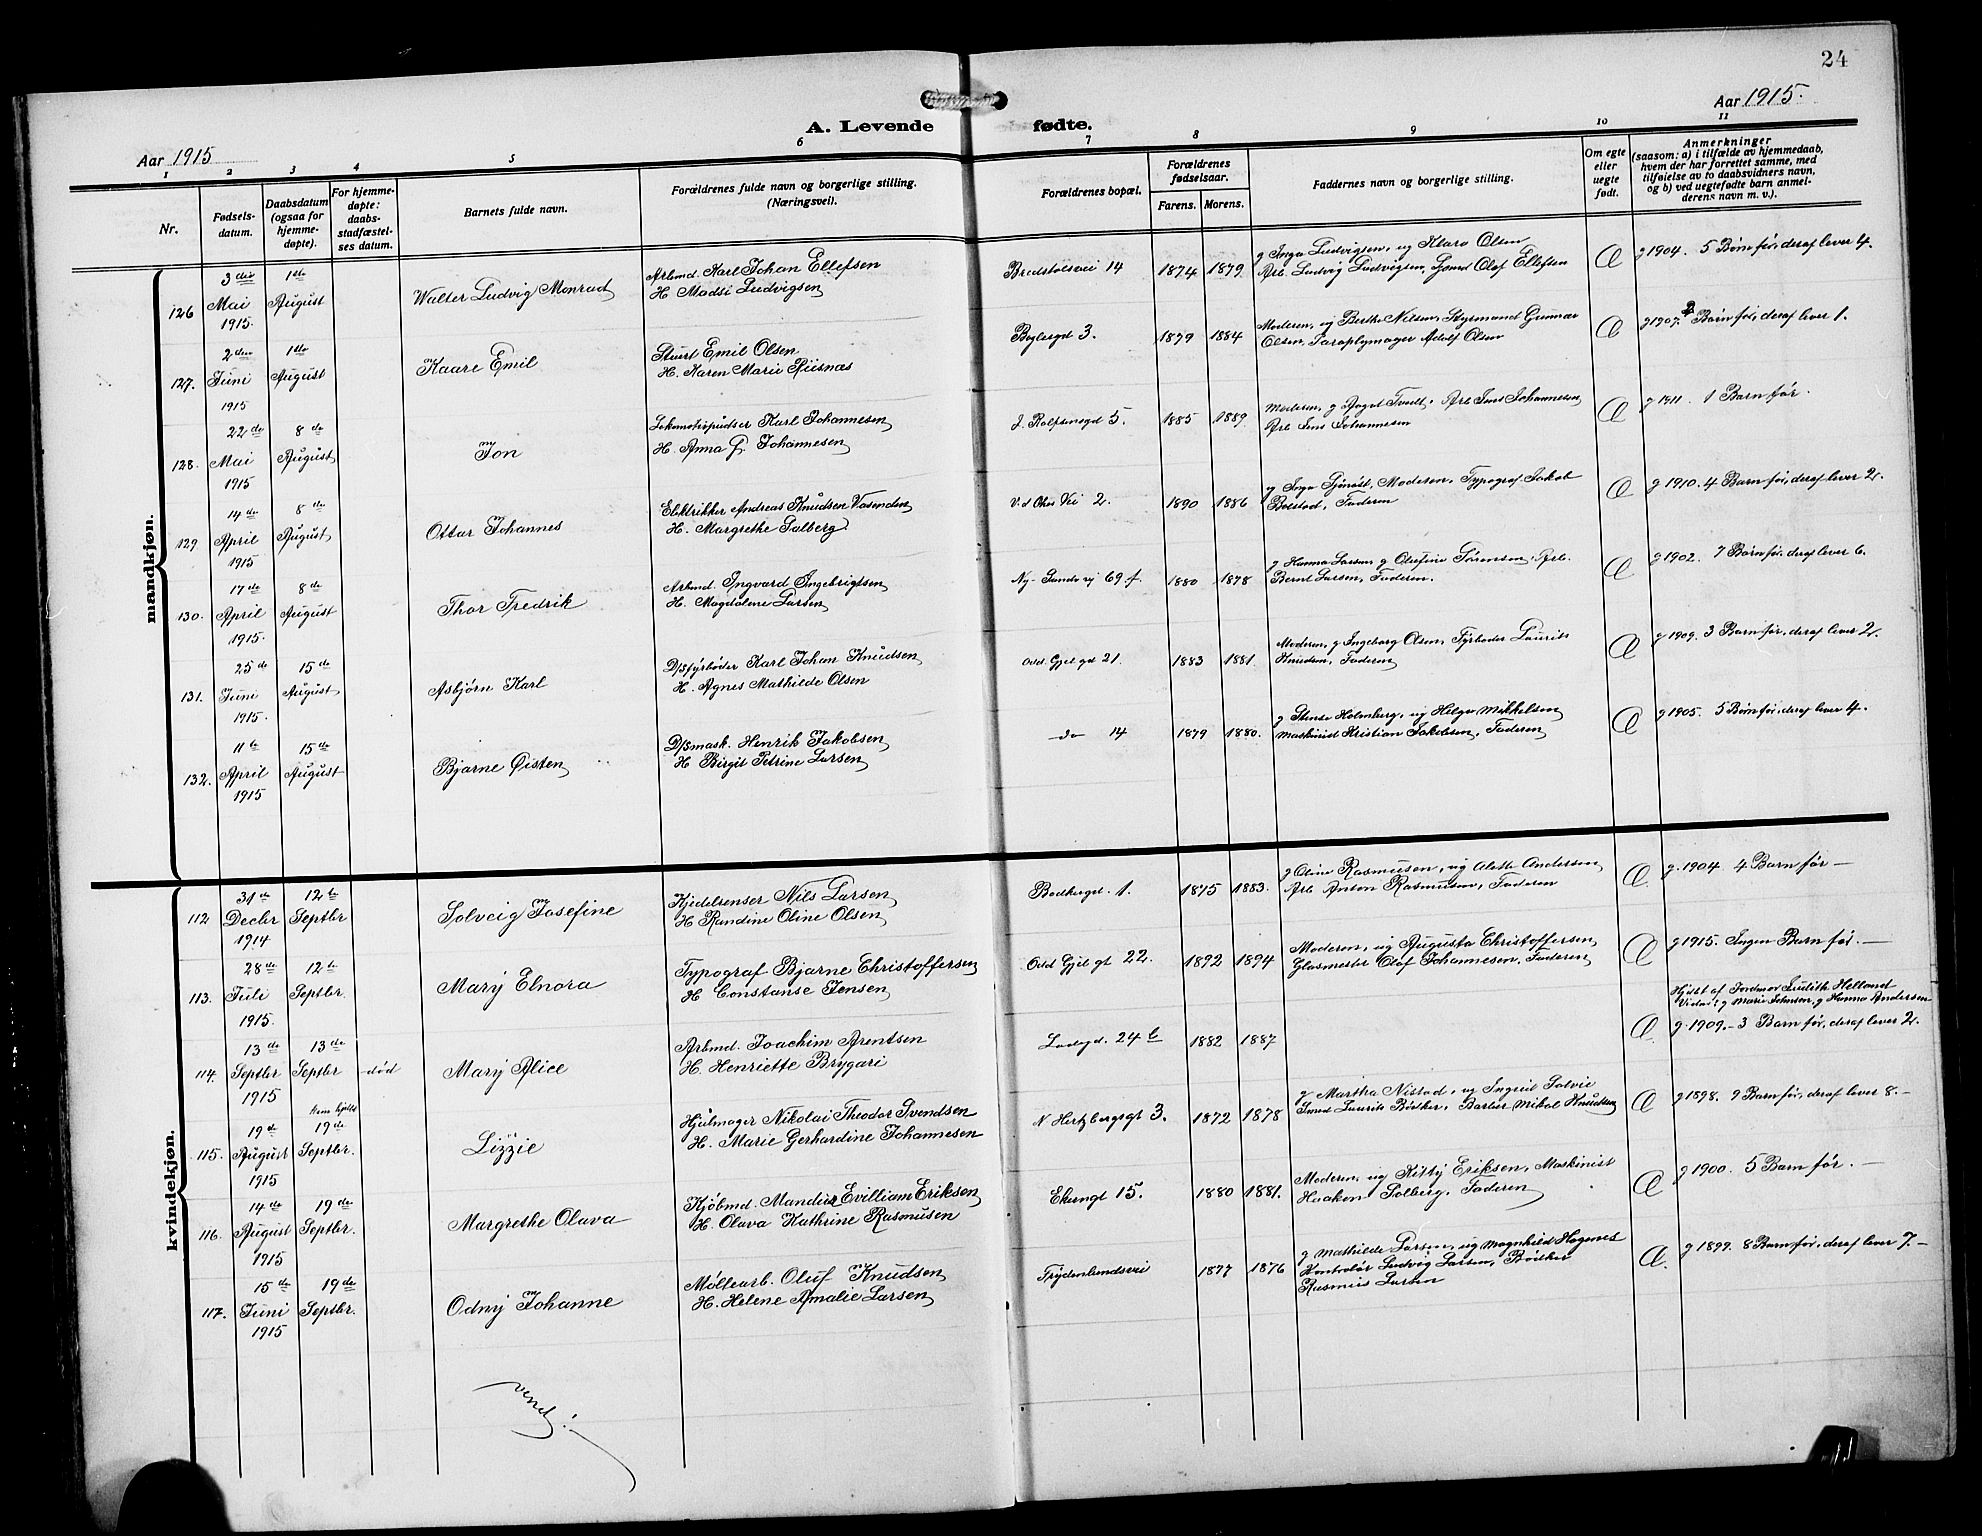 24
Aar 1915.
Aar 1915
A. Levende fødte.
1 2 3 4 5 6 7 8 9 10 11
Nr.
Fødsels-
datum.
Daabsdatum
(ogsaa for
hjemme-
døpte).
For hjemme-
døpte:
daabs-
stadfæstel-
ses datum.
Barnets fulde navn.
Forældrenes fulde navn og borgerlige stilling.
(Næringsvei).
Forældrenes bopæl.
Forældrenes
fødselsaar.
Farens. Morens.
Faddernes navn og borgerlig stilling.
Om egte
eller
uegte
født.
Anmerkninger
(saasom: a) i tilfælde av hjemmedaab,
hvem der har forrettet samme, med
tilføielse av to daabsvidners navn,
og b) ved uegtefødte barn anmel-
derens navn m. v.).
mandkjøn.
126 3die Mai 1915. 1ste August Walter Ludvig Monrad
Arbmd. Karl Johan Ellefsen
H. Madsi Ludvigsen
Bredstølsvei 14 1874 1879
g Inga Ludvigsen, ug Klara Olsen
Arb. Ludvig Ludvigsen, Olaf Ellefsen
Æ g 1904. 5 Børn før, deraf lever 4.
127. 2den Juni 1915 1ste August Kaare Emil
Stuert Emil Olsen
H. Karen Marie Riisnæs
Bøglesgd 3. 1879 1884
Moderen, ug Berthe Nilsen, Styrmand Gunnar
Olsen, Paraplymager Adolf Olsen
Æ g 1907. 2 Børn før, deraf lever 1.
128. 22de Mai 1915 8de August Jon
Lokomotivpudser Karl Johannesen
H. Anna G. Johannesen
J. Rolfsensgd 5. 1885 1889
Moderen, g Aagot Tvedt, Arb Jens Johannesen
Arb Jens Johannesen
Æ g 1911. 1 Barn før.
129 14de April 1915 8de August Ottar Johannes
Elektrikker Andreas Knudsen Vasenden
H. Margrethe Salberg
Vei 2. 1890 1886
g Inga Moderen, Typograf Jakob
Bolstad, Faderen
Æ g 1910. 4 Barn før, deraf lever 2.
130. 17de April 1915. 8de August Thor Fredrik
Arbmd Ingvard Ingebrigtsen
H. Magdalene Larsen
Ny-Sandv vj 69 f. 1880 1878
g Hanna Larsen g Olefine Sørensen, Arb.
Bernt Larsen, Faderen.
Æ g 1902. 7 Børn før, deraf lever 6.
131. 25de Juni 1915. 15de August Asbjørn Karl
D/sfyrbøder Karl Johan Knudsen
H. Agnes Mathilde Olsen
Odd. Gjel gd 21. 1883 1881.
Moderen, g Ingeborg Olsen, Fyrbøder Laurits
Knudsen, Faderen
Æ g 1909. 3 Barn før, deraf lever 2.
132. 11te April 1915 15de August Bjarne Øisten
D/smask. Henrik Jakobsen
H Birgit Petrine Larsen
do 14 1879 1880.
g Stense Holmberg, ug Helga Mikkelsen
Maskinist Kristian Jakobsen, Faderen
Æ g 1905. 5 Børn før, deraf lever 4.
kvindekjøn.
112 31de Decbr 1914 12te Septbr Solveig Josefine
Kjedelrenser Nils Larsen
H Randine Oline Olsen
Bødkergd. 1. 1875 1883.
g Oline Rasmusen, ug Alette Andersen
Arb Anton Rasmusen, Faderen
Æ. g. 1904. 4 Barn før —
113. 28de Juli 1915. 12te Septbr. Mary Elnora
Typograf Bjarne Christoffersen
H Constanse Jensen
Odd Gjel gt 22. 1892 1894
Moderen, ug Augusta Christoffersen,
Glasmester Olaf Johannesen, Faderen
Æ g 1915. Ingen Barn før. —
114. 13de Septbr 1915 13de Septbr død Mary Alice
Arbmd. Joachim Arentsen
H. Henriette Brygari
Ladegd. 24 b 1882 1887
Hjdøbt af Jordmor Judith Helland
Vidner: g Marie Johnsen, g Hanna Andersen
Æ. g. 1909. – 3 Barn før, deraf lever 2.
115. 19de August 1915 19de Septbr. Lizzie
Hjulmager Nikolai Theodor Svendsen
H. Marie Gerhardine Johannesen
N Hertzbergsgt 3. 1872 1878
g Martha Nistad, ug Ingrid Solvie
Smed Laurits Bödker, Barbér Mikal Knudsen
Æ g 1898. 9 Barn før, deraf lever 8. –
116. 14de August 1915 19de Septbr. Margrethe Olava
Kjøbmd. Mandius Evilliam Eriksen
H. Olava Kathrine Rasmusen
Ekrengt 15. 1880 1881.
Moderen, ug Kitty Eriksen, Maskinist
Haakon Solberg, Faderen
Æ g 1900. 5 Barn før. —
117. 15de Juni 1915 19de Septbr. Odny Johanne
Møllearb. Oluf Knudsen
H. Helene Amalie Larsen
Frydenlundsvei 1877 1876
g Mathilde Larsen, ug Magnhild Hagenes
Kontrolør Ludvig Larsen, Bödker
Rasmus Larsen
Æ. g 1899. 8 Barn før, deraf lever 7. –
vend!